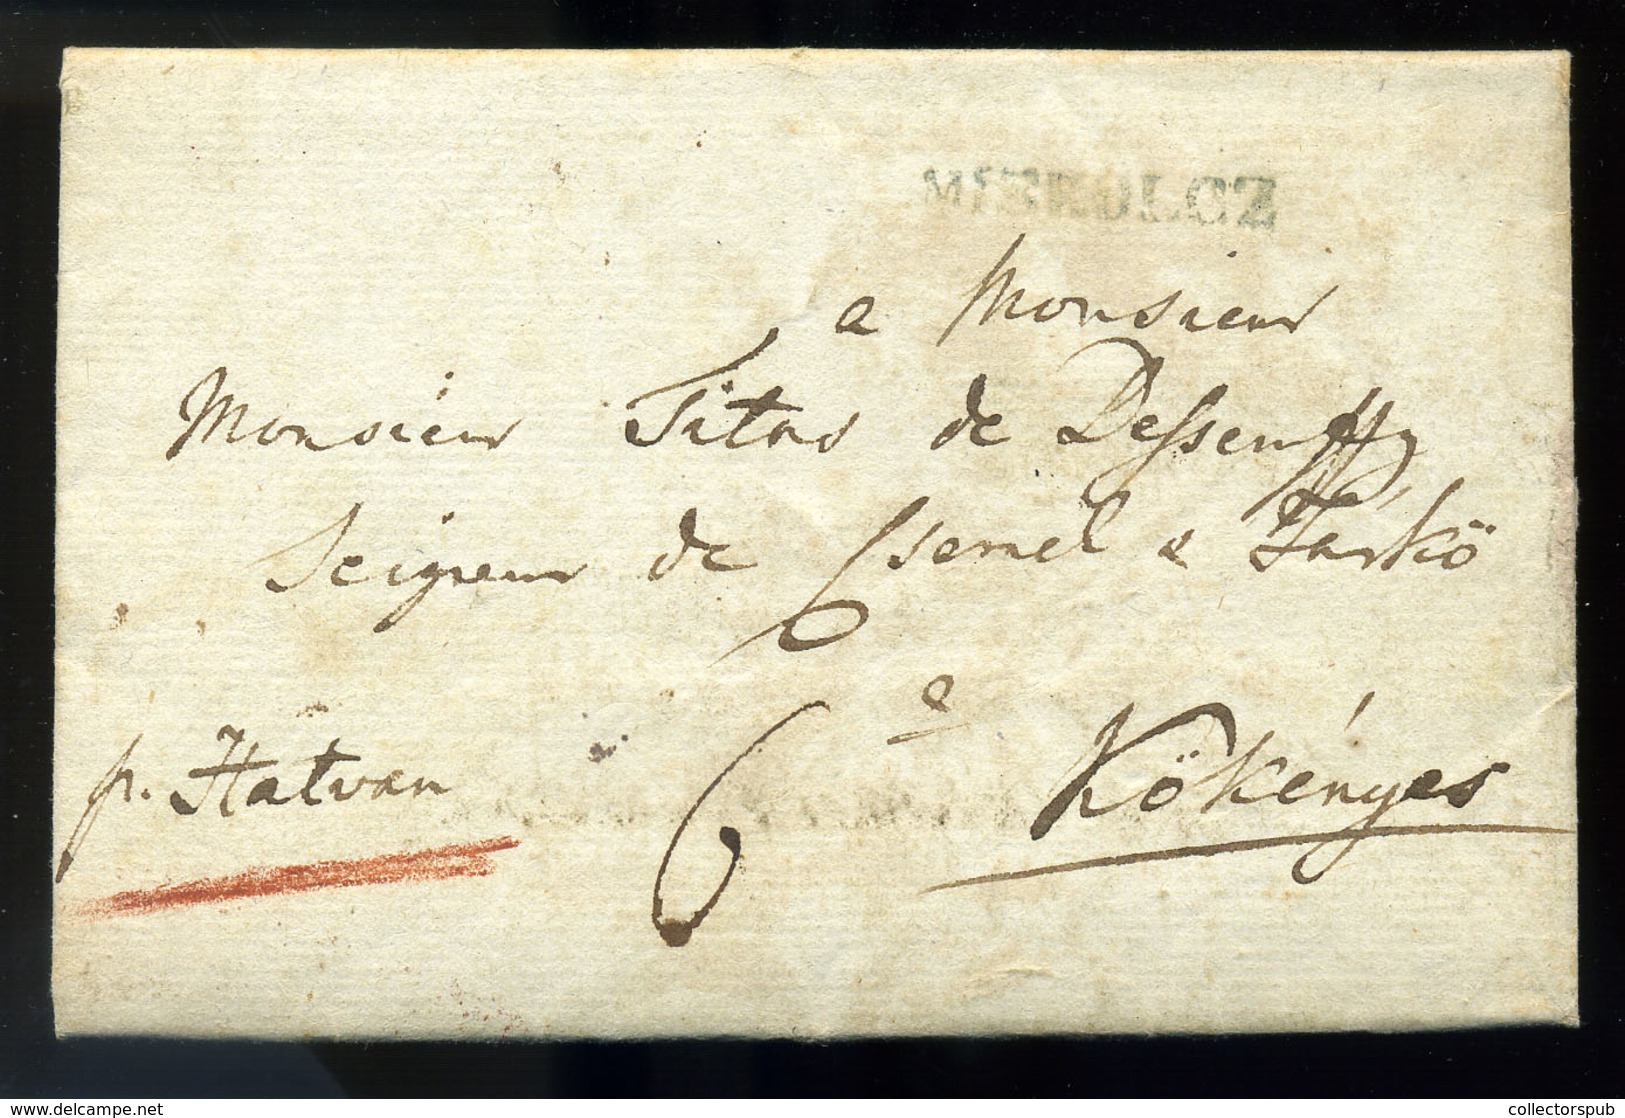 MISKOLCZ
a Monsieur
Monsieur Titus de Dessewffy
Seigneur de Csernek & Tarkö
a
p. Hatvan 6 Kökényes
delcampe.net
collectorspub